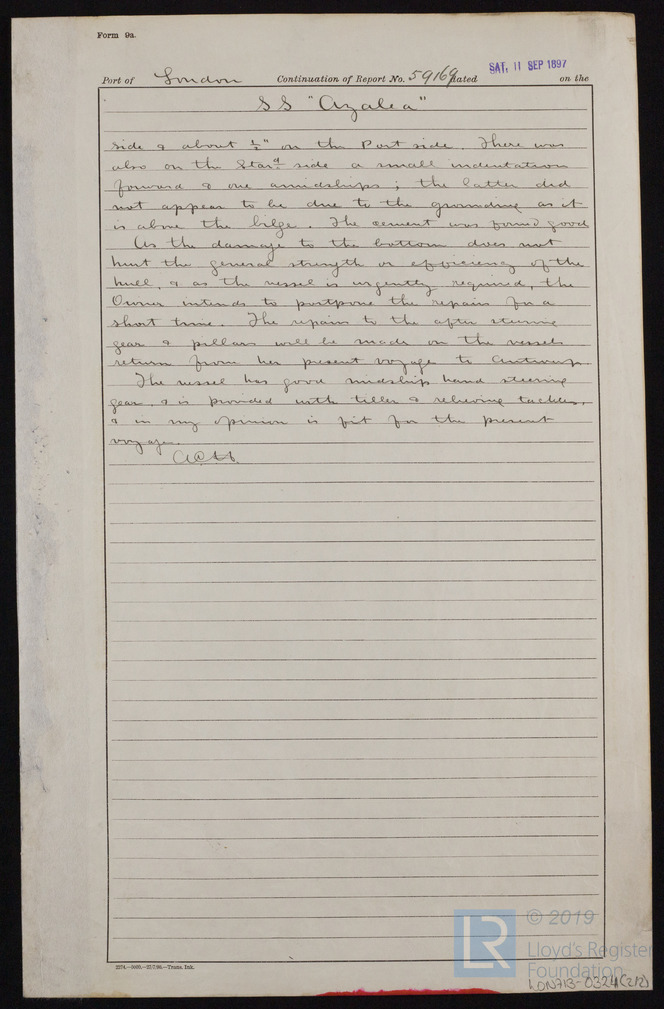 Form 9a.
Port of London Continuation of Report No. 59169 dated SAT, 11 SEP 1897 on the
SS "Azalea"
side & about ½" on the Port side. There was
also on the Starᵈ side a small indentation
forward & one amidships; the latter did
not appear to be due to the grounding as it
is above the bilge. The cement was found good
As the damage to the bottom does not
hurt the general strength or efficiency of the
hull, & as the vessel is urgently required, the
Owner intends to postpone the repairs for a
short time. The repairs to the after steering
gear & pillars will be made on the vessels
return from her present voyage to Antwerp.
The vessel has good midship hand steering
gear, & is provided with tiller & relieving tackles,
& in my opinion is fit for the present
voyage.
2274.—0600.—27/7/96.—Trans. Ink.
LR © 2019
Lloyd's Register
Foundation
LON713-0324(2/2)